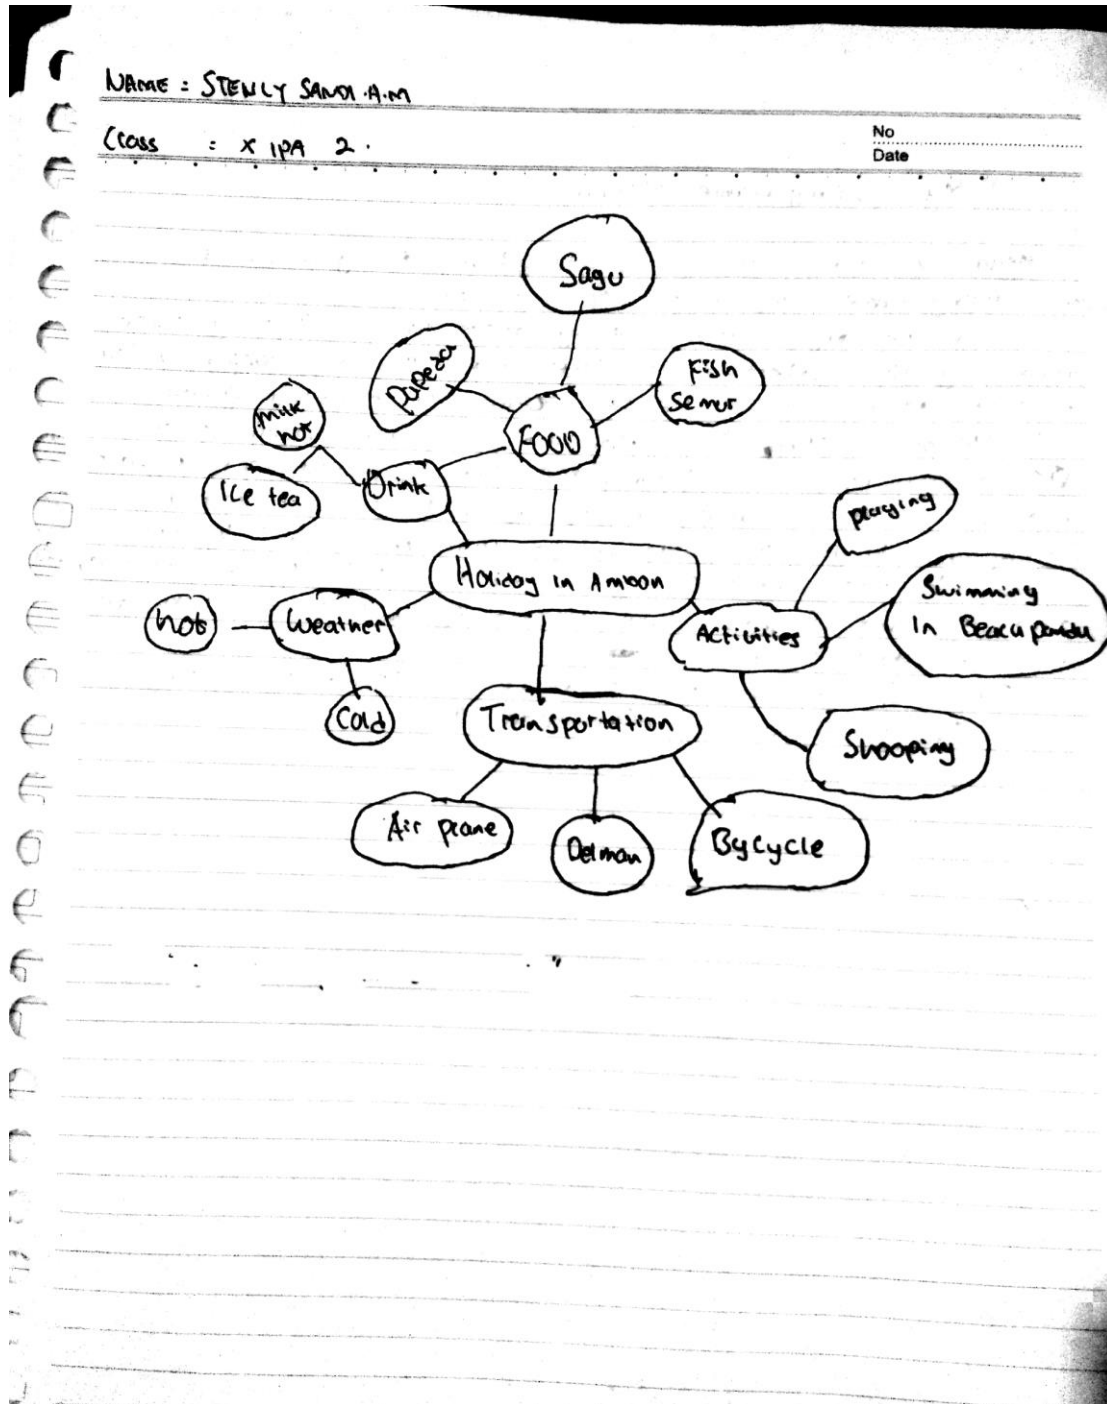 NAME : STENLY SANDI .A.M
Class : X IPA 2 .
No
Date
Sagu
Papeda
Fish
Semur
Milk
hot
FOOD
Ice tea
Drink
playing
Holiday in Ambon
Swimming
In Beach pandu
hot
Weather
Activities
Cold
Transportation
Shooping
Air plane
Delman
Bycycle